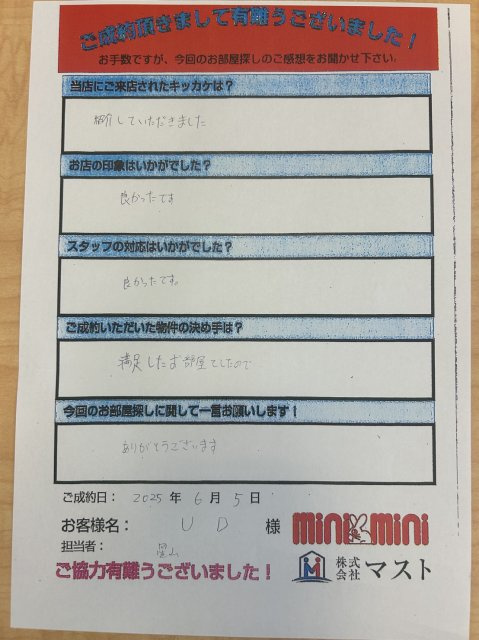 ご成約頂きまして有難うございました！
お手数ですが、今回のお部屋探しのご感想をお聞かせ下さい。
当店にご来店されたキッカケは？
紹介していただきました
お店の印象はいかがでした？
良かったです
スタッフの対応はいかがでした？
良かったです。
ご成約いただいた物件の決め手は？
満足したお部屋でしたので
今回のお部屋探しに関して一言お願いします！
ありがとうございます
ご成約日： 2025 年 6 月 5 日
お客様名： U D 様
mini mini
担当者：
株式会社 マスト
ご協力有難うございました！